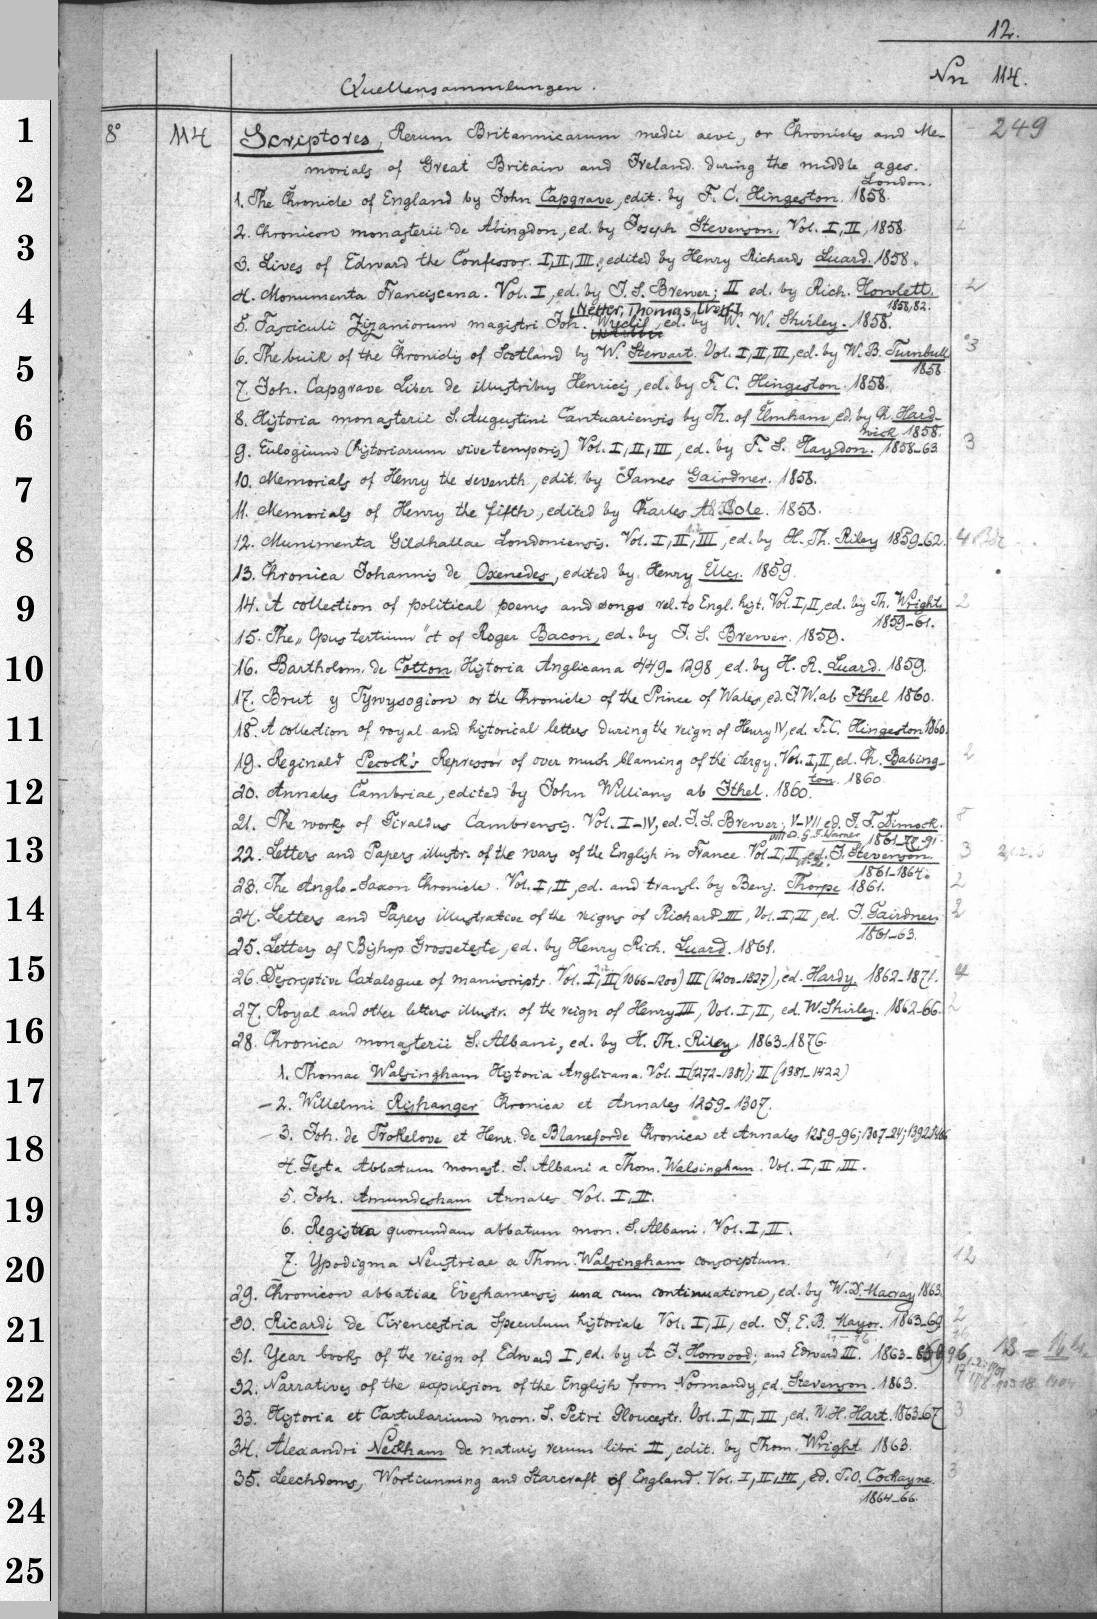 12.
Nn 114.
Quellensammlungen.
8° 114 Scriptores, Rerum Britannicarum medii aevi, or Chronicles and Me- 249
morials of Great Britain and Ireland during the middle ages.
London.
1. The Chronicle of England by John Capgrave, edit. by F. C. Hingeston. 1858.
2. Chronicon monasterii de Abingdon, ed. by Joseph Stevenson. Vol. I, II, 1858.
3. Lives of Edward the Confessor. I, II, III, edited by Henry Richards Luard. 1858.
4. Monumenta Franciscana. Vol. I, ed. by J. S. Brewer; II ed. by Rich. Howlett. 2
1858, 82.
(Netter, Thomas,
5. Fasciculi Zizaniorum magistri Joh. Wyclif, ed. by W. W. Shirley. 1858.
6. The buik of the Chroniclis of Scotland by W. Stewart. Vol. I, II, III, ed. by W. B. Turnbull 3
1858
7. Joh. Capgrave Liber de illustribus Henricis, ed. by F. C. Hingeston. 1858.
8. Historia monasterii S. Augustini Cantuariensis by Th. of Elmham, ed. by Ch. Hard-
wick 1858.
9. Eulogium (historiarum sive temporis) Vol. I, II, III, ed. by F. S. Haydon. 1858-63 3
10. Memorials of Henry the seventh, edit. by James Gairdner. 1858.
11. Memorials of Henry the fifth, edited by Charles A. Cole. 1858.
12. Munimenta Gildhallae Londoniensis. Vol. I, II, III, ed. by H. Th. Riley 1859-62. 4
13. Chronica Johannis de Oxenedes, edited by Henry Ellis. 1859.
14. A collection of political poems and songs rel. to Engl. hist. Vol. I, II, ed. by Th. Wright 2
1859-61.
15. The „Opus tertium" ct of Roger Bacon, ed. by J. S. Brewer. 1859.
16. Bartholom. de Cotton, Historia Anglicana 449-1298, ed. by H. R. Luard. 1859.
17. Brut y Tywysogion or the Chronicle of the Prince of Wales, ed. J. W. ab Ithel 1860.
18. A collection of royal and historical letters during the reign of Henry IV, ed. F. C. Hingeston 1860.
19. Reginald Pecock's Repressor of over much blaming of the clergy. Vol. I, II, ed. Ch. Babing- 2
ton. 1860
20. Annales Cambriae, edited by John Williams ab Ithel. 1860.
21. The works of Giraldus Cambrensis. Vol. I-IV, ed. J. S. Brewer; V-VII ed. J. F. Dimock. 8
VIII ed. G. F. Warner 1861-77-91.
22. Letters and Papers illustr. of the wars of the English in France. Vol. I, II, ed. J. Stevenson. 3
1861-1864.
23. The Anglo-Saxon Chronicle. Vol. I, II, ed. and transl. by Benj. Thorpe 1861. 2
24. Letters and Papers illustrative of the reigns of Richard III, Vol. I, II, ed. J. Gairdner. 2
1861-63.
25. Letters of Bishop Grosseteste, ed. by Henry Rich. Luard. 1861.
26. Descriptive Catalogue of manuscripts. Vol. I, II (1066-1200) III (1200-1327), ed. Hardy. 1862-1871. 4
27. Royal and other letters illustr. of the reign of Henry III, Vol. I, II, ed. W. Shirley. 1862-66. 2
28. Chronica monasterii S. Albani, ed. by H. Th. Riley. 1863-1876.
1. Thomae Walsingham Historia Anglicana. Vol. I (1272-1381); II (1381-1422)
-2. Willelmi Rishanger Chronica et Annales 1259-1307.
-3. Joh. de Trokelowe et Henr. de Blaneforde Chronica et Annales 1259-96; 1307-24; 1392-1406
4. Gesta Abbatum monast. S. Albani a Thom. Walsingham. Vol. I, II, III.
5. Joh. Amundesham Annales Vol. I, II.
6. Registra quorundam abbatum mon. S. Albani. Vol. I, II.
7. Ypodigma Neustriae a Thom. Walsingham conscriptum. 12
29. Chronicon abbatiae Eveshamensis una cum continuatione, ed. by W. D. Macray 1863.
30. Ricardi de Cirencestria Speculum historiale Vol. I, II, ed. J. E. B. Mayor. 1863-69 2
31. Year books of the reign of Edward I, ed. by A. J. Horwood; and Edward III. 1863- 96
32. Narratives of the expulsion of the English from Normandy, ed. Stevenson. 1863.
33. Historia et Cartularium mon. S. Petri Gloucestr. Vol. I, II, III, ed. W. H. Hart. 1863-67 3
34. Alexandri Neckham de naturis rerum libri II, edit. by Thom. Wright 1863.
35. Leechdoms, Wortcunning and Starcraft of England. Vol. I, II, III, ed. T. O. Cockayne. 3
1864-66.
1
2
3
4
5
6
7
8
9
10
11
12
13
14
15
16
17
18
19
20
21
22
23
24
25